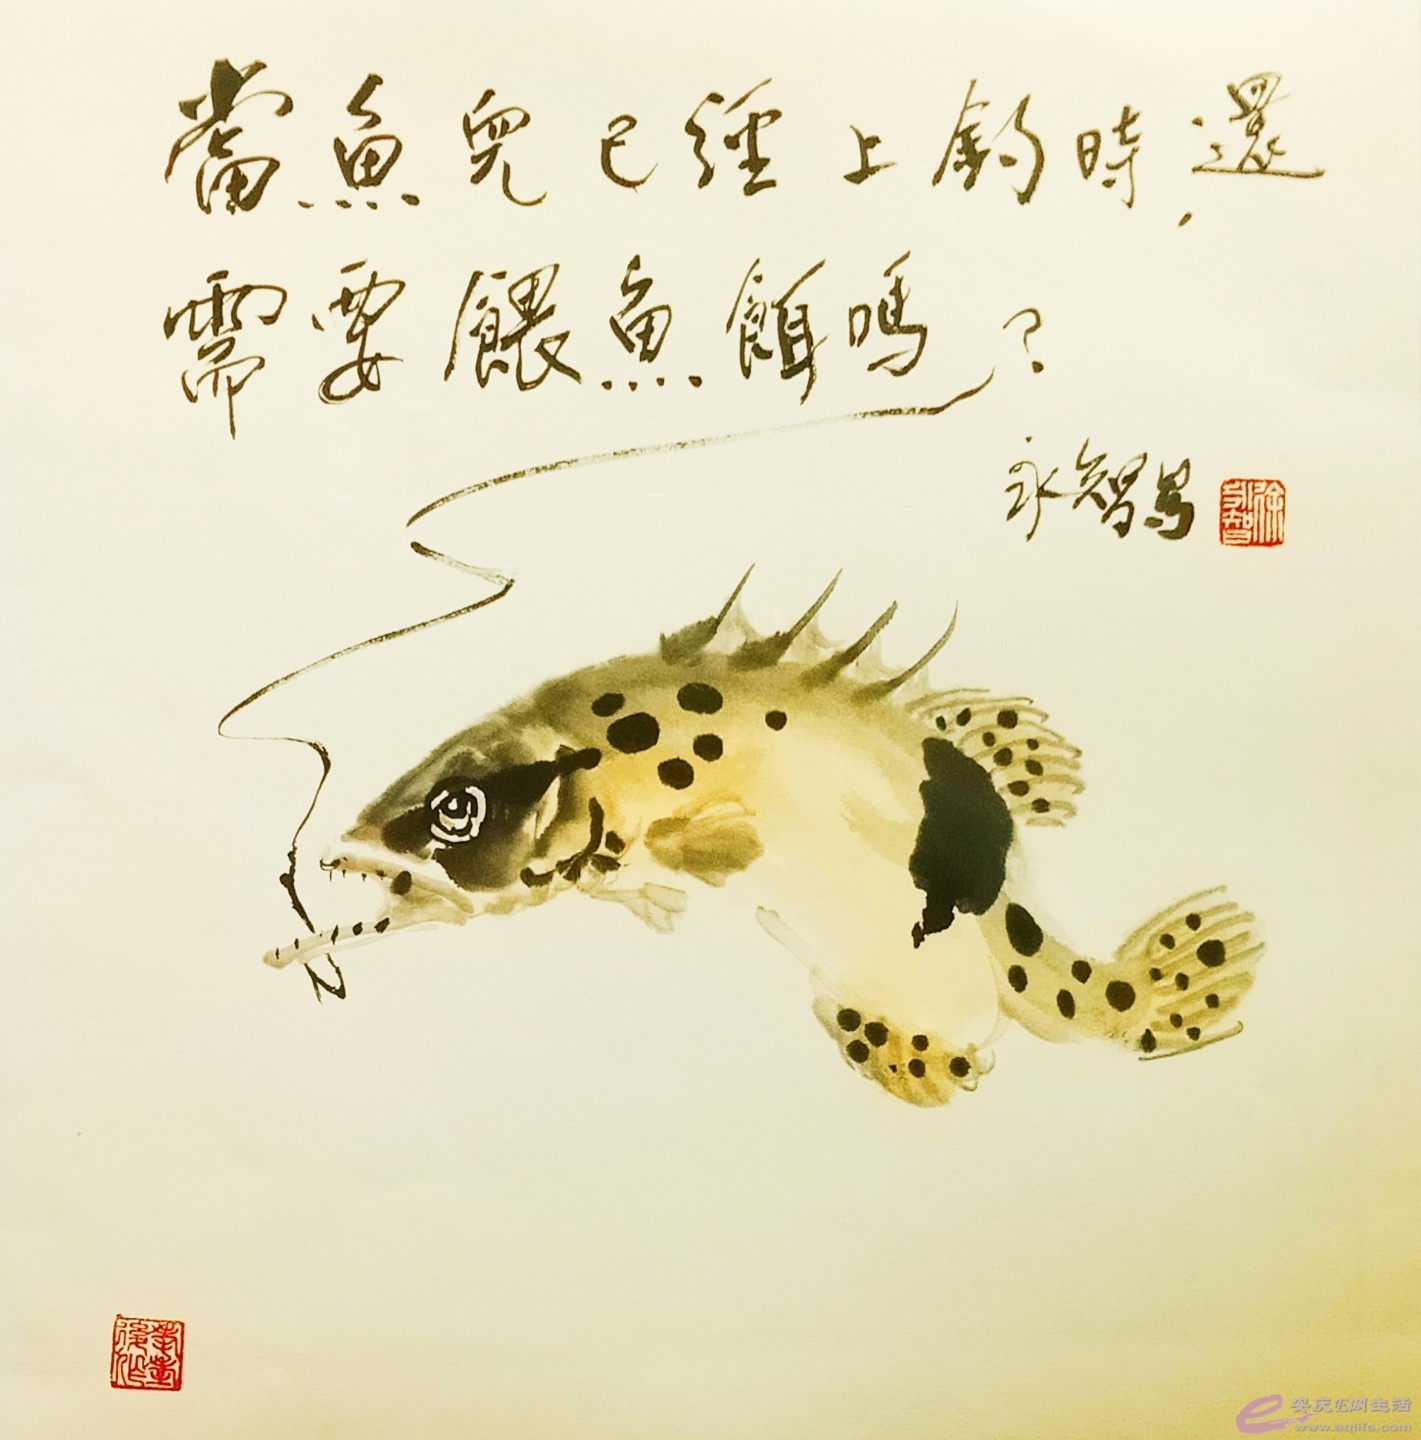 當魚兒已經上鈎時，還
需要餵魚餌嗎？
永智写
徐永智
安庆E网生活
www.aqlife.com